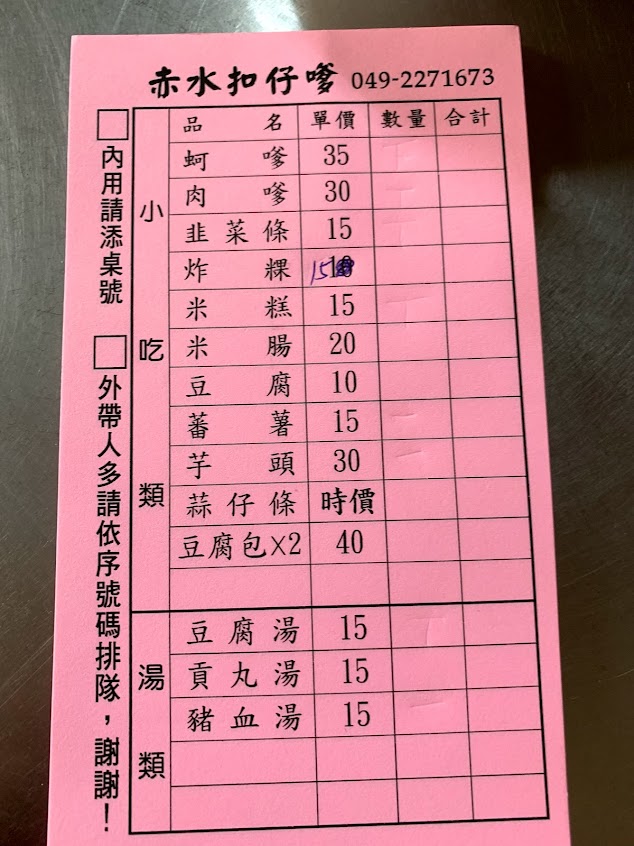 赤水扣仔嗲 049-2271673
□內用請添桌號
□外帶人多請依序號碼排隊，謝謝！
小吃類
品名 單價 數量 合計
蚵嗲 35
肉嗲 30
韭菜條 15
炸粿 15
米糕 15
米腸 20
豆腐 10
蕃薯 15
芋頭 30
蒜仔條 時價
豆腐包X2 40
湯類
豆腐湯 15
貢丸湯 15
豬血湯 15